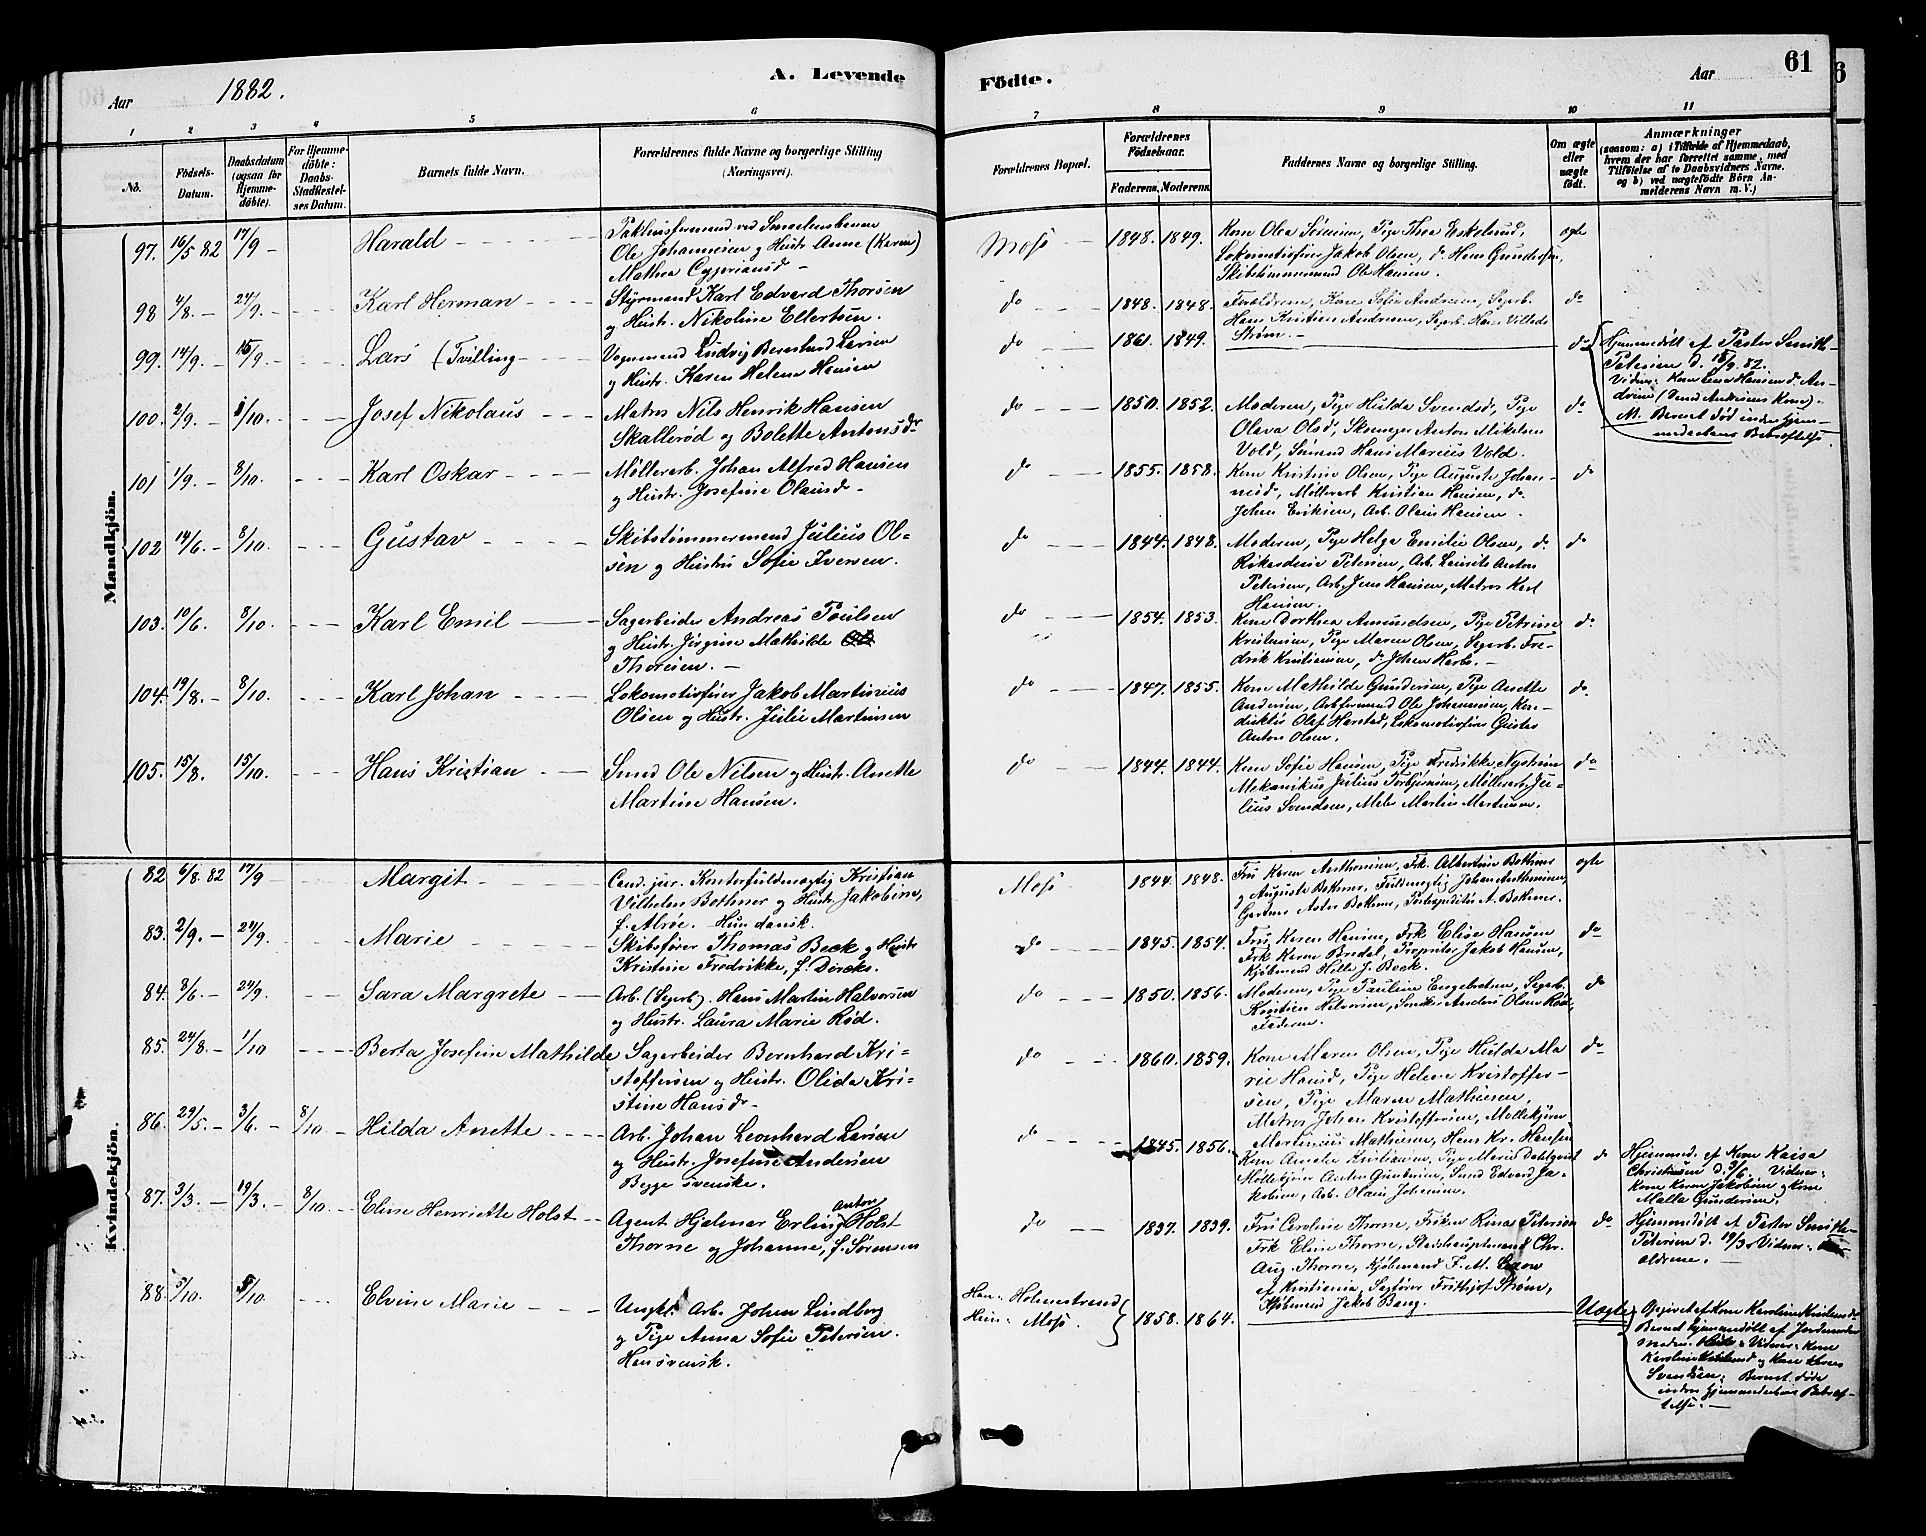 Aar 1882.
A. Levende
1 2 3 4 5 6
No. Födsels-Datum. Daabsdatum (ogsaa for Hjemme-döbte). For Hjemme-döbte: Daabs-Stadfæstel-ses Datum. Barnets fulde Navn. Forældrenes fulde Navne og borgerlige Stilling (Næringsvei).
Mandkjön.
97. 16/5 82 17/9 - Harald - Pakhusformand ved Smaalensbanen
Ole Johannesen g Hustr. Anne (Karen)
Mathea Cypriansd -
98 4/8. - 24/9. - Karl Herman - Styrmand Karl Edvard Thorsen
g Hustr. Nikoline Ellertsen.
99. 14/9. - 15/9. - Lars (Tvilling - Vognmand Ludvig Bernhard Larsen
g Hustr. Karen Helene Hansen
100. 2/9. - 1/10. - Josef Nikolaus - Matros Nils Henrik Hansen
Skallerød og Bolette Antonsdr
101 1/9. - 8/10. - Karl Oskar - Möllerarb. Johan Alfred Hansen
g Hustr. Josefine Olausd -
102 14/6. - 8/10. - Gustav - Skibstimmermand Julius Ol-
sen g Hustru Sofie Iversen.
103. 10/6. 8/10. - Karl Emil - Sagarbeider Andreas Poulsen
g Hustr. Jörgine Mathilde
Thoresen. -
104. 19/8. - 8/10. - Karl Johan - Lokomotivfører Jakob Martinius
Olsen g Hustr. Julie Martinsen
105. 15/8. 15/10. - Hans Kristian - Smed Ole Nilsen g Hustr. Anette
Martine Hansen.
Kvindekjön.
82 6/8. 82 17/9 - Margit - Cand. jur. Kontorfuldmægtig Kristian
Vilhelm Bothner g Hustr. Jakobine,
f. Alrøe. Hun dansk.
83. 2/9. - 24/9. - Marie - Skibsfører Thomas Beck g Hustr
Kristine Fredrikke, f. Dircks.
84. 8/6. - 24/9. - Sara Margrete - Arb. (Sagarb). Hans Martin Halvorsen
g Hustr. Laura Marie Rød.
85. 24/8. - 1/10 - Berta Josefine Mathilde Sagarbeider Bernhard Kri-
stoffersen g Hustr. Olida Kri-
stine Hansdr -
86. 29/5. - 3/6. - 8/10 - Hilda Anette - Arb. Johan Leonhard Larsen
g Hustr. Josefine Andersen
Begge svenske.
87. 3/3. - 19/3. - 8/10 - Eline Henriette Holst - Agent Hjalmar Erling Anton Holst
Thorne g Johanne, f. Sørensen
88. 5/10. 5/10. - Elvine Marie - Ungk. Arb. Johan Lindberg
g Pige Anna Sofie Petersen.
Han svensk.
Födte.
Aar 61
7 8 9 10 11
Forældrenes Bopæl. Forældrenes Födselsaar. Faderens. Moderens. Faddernes Navne og borgerlige Stilling. Om ægte eller uægte födt. Anmærkninger (saasom: a) i Tilfælde af Hjemmedaab, hvem der har forrettet samme, med Tilföielse af to Daabsvidners Navne, og b) ved uægtefödte Börn Anmelderens Navn m. V.)
Moss - 1848. 1849. Kone Olea Petersen, Pige Thea Eskelund, ægte
Lokomotivfører Jakob Olsen, do Hans Gundersen,
Skibstømmermand Ole Hansen.
do - 1848. 1848. Forældrene, Kone Sofie Andresen, Sagarb. do
Hans Kristian Andresen, Sagarb. Hans Villads
Strøm. -
do - 1861. 1849. do Hjemmedøbt af Pastor Smith-
Petersen d. 15/9. 82.
Vidner: Kone Lene Hansen d. An-
drine (Smed Andersens Kone).
M. Barnet død inden Hjem-
medaabens Bekræftelse.
do - 1850. 1852. Moderen, Pige Hulda Svendsd, Pige do
Olava Olsd, Skomager Anton Mikelsen
Vold, Sømand Hans Marius Vold.
do - 1855. 1858. Kone Kristine Olsen, Pige Auguste Johan- do
nesd, Möllerarb Kristian Hansen, do
Johan Eriksen, Arb. Olaus Hansen.
do - 1844. 1848. Moderen, Pige Helga Emilie Olsen, do do
Rikardine Petersen, Arb. Laurits Anton
Petersen, Arb. Jens Hansen, Matros Karl
Hansen.
do - 1854. 1853. Kone Dorthea Amundsen, Pige Petrine do
Kristensen, Pige Maren Olsen, Sagarb. Fre-
drik Kristiansen, do Johan Harbo. -
do - 1847. 1855. Kone Mathilde Gundersen, Pige Anette do
Andersen, Arbformand Ole Johannesen, Kon-
duktør Olaf Harstad, Lokomotivfører Gustav
Anton Olsen.
do - 1844. 1844. Kone Sofie Hansen, Pige Fredrikke Nystrøm do
Mekanikus Julius Torbjørnsen, Möllerarb. Ju-
lius Svendsen, Maler Martin Martinsen.
Moss. 1844. 1848. Fru Karen Anthonisen, Frk. Albertine Bothner ægte
g Auguste Bothner, Fuldmægtig Johan Anthonisen,
Gartner Aster Bothner, Postexpeditør A. Bothner.
do - 1845. 1854. Fru Karen Hansen, Frk Elise Hansen do
Frk Karen Bredal, Proprietær Jakob Hansen,
Kjøbmand Helle J. Beck.
do - 1850. 1856. Moderen, Pige Pauline Engebretsen, Sagarb. do
Kristian Halvorsen, Snedker Anders Olsen Rød,
Faderen.
do - 1860. 1859. Kone Maren Olsen, Pige Hulda Ma do
rie Hansd, Pige Helene Kristoffer-
sen, Pige Maren Mathisen,
Matros Johan Kristoffersen, Møllekjører
Martinius Mathisen, Hans Kr. Hansen
do - 1845. 1856. Kone Amalie Kristiansen, Pige Maria Dahlqvist do Hjemmed. af Kone Kaisa
Møllekjører Anton Gundersen, Smed Edvard Ja- Christensen d. 3/6. Vidner:
kobsen, Arb. Olaus Johansen. Kone Karen Jakobsen g Kone
Malla Gundersen.
do - 1837. 1839. Fru Caroline Thorne, Frøken Rina Petersen do Hjemmedøbt af Pastor Smith-
Frk Eline Thorne, Stadshauptmand Chr. Petersen d. 19/3. Vidner:
Aug. Thorne, Kjøbmand F. M. ældrene. -
af Kristiania, Sagfører Frithjof Strøm,
Kjøbmand Jakob Bang.
Han: Holmestrand
Hun: Moss. 1858. 1864. Uægte Opgivet af Kone Karoline Kristensdr
Barnet hjemmedøbt af Jordemoder
Vidner: Kone
Karoline g Kone
Svendsen. Barnet døde
inden Hjemmedaabens Bekræf-
telse. -